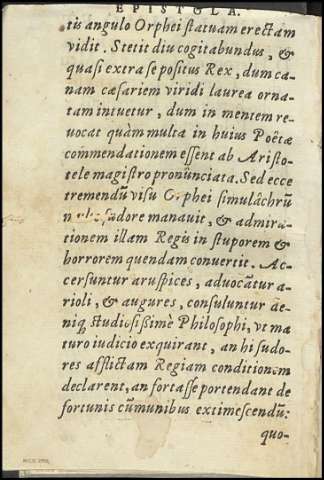 EPISTOLA.
tis angulo Orphei statuam erectam
vidit. Stetit diu cogitabundus, &
quasi extra se positus Rex, dum ca-
nam cæsariem viridi laurea orna-
tam intuetur, dum in mentem re-
vocat quàm multa in huius Poëtæ
commendationem essent ab Aristo-
tele magistro pronūnciata. Sed ecce
tremendū visu Orphei simulâchrū
sudore manauit, & admira-
tionem illam Regis in stuporem &
horrorem quendam conuertit. Ac-
cersuntur aruspices, advocātur a-
rioli, & augures, consuluntur de-
niq; studiosissimè Philosophi, vt ma
turo iudicio exquirant, an hi sudo-
res afflictam Regiam conditionem
declarent, an fortasse portendant de
fortunis cūmunibus extimescendū:
quo-